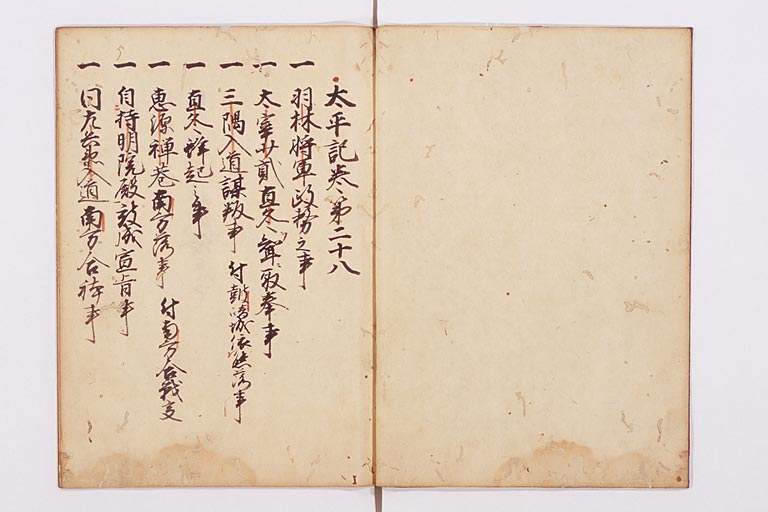 太平記巻第二十八
一 羽林将軍政務之事
一 太宰少貳直冬聟取奉事
一 三隅入道謀叛事 付鼓崎城依熊落事
一 直冬蜂起之事
一 恵源禅巷南方落事 付南方合戦事
一 自持明院殿被成宣旨事
一 同左兵衛入道南方合体事